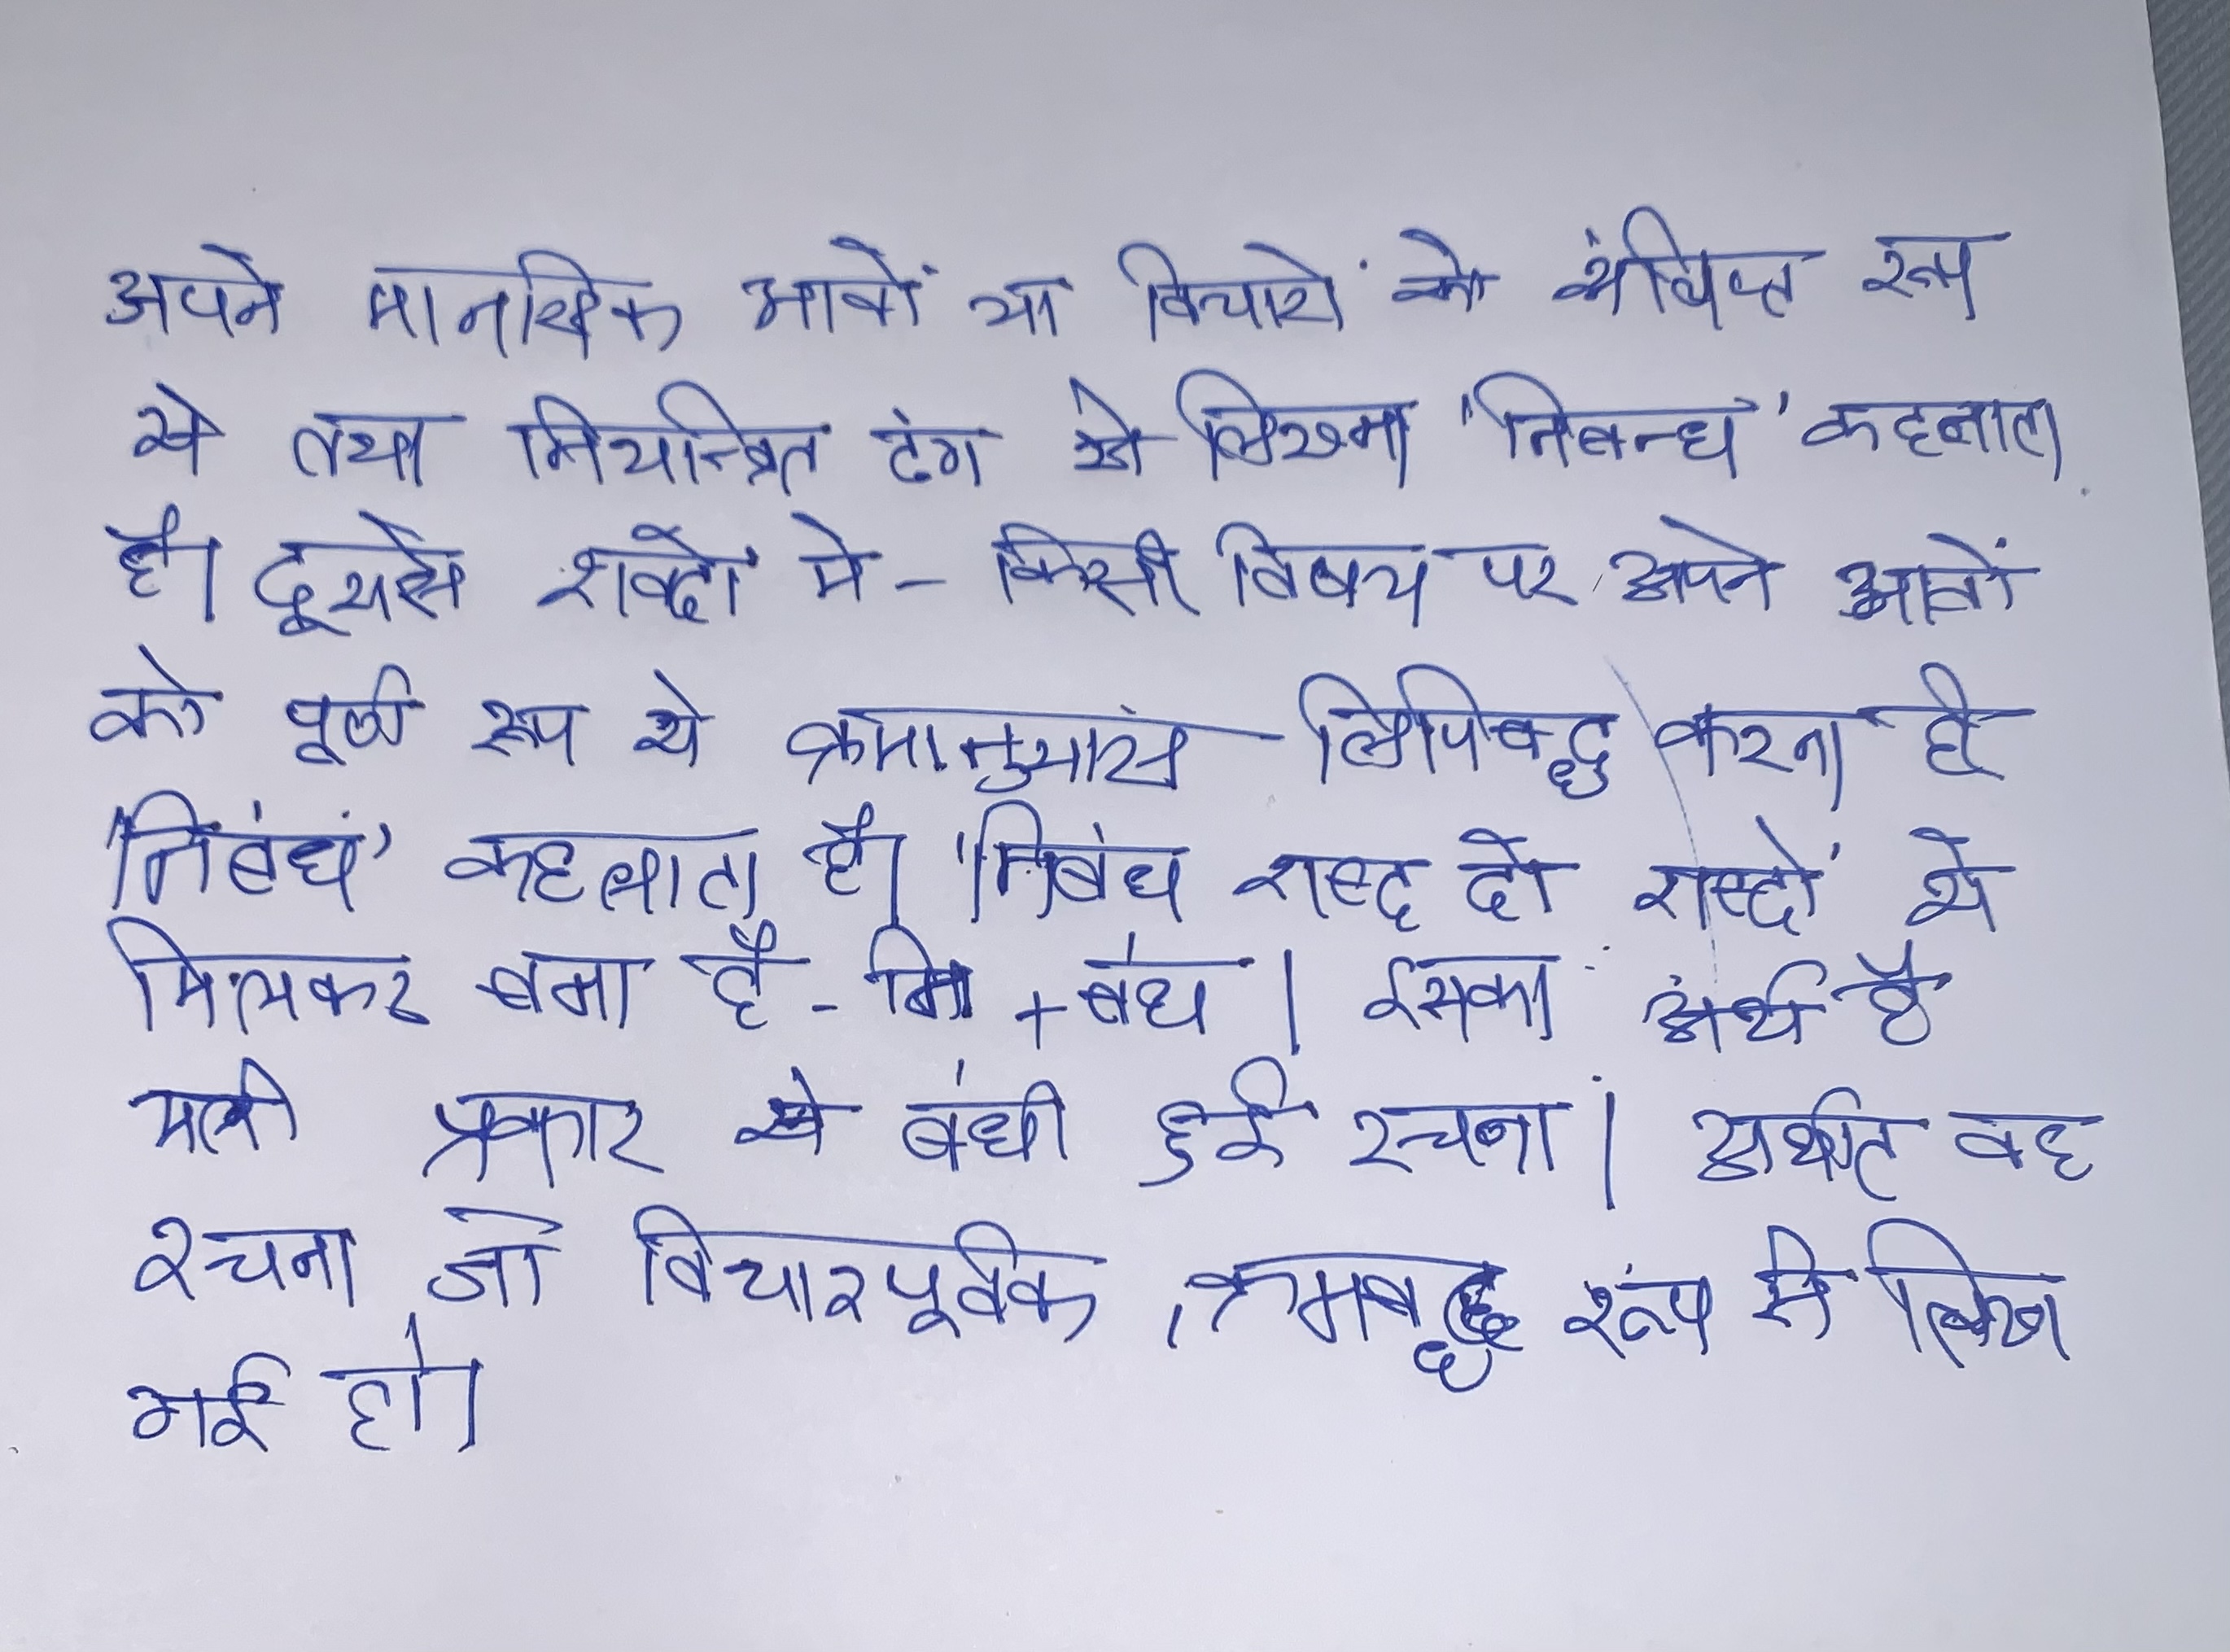 अपने मानसिक भावों या विचारों को संक्षिप्त रूप
से तथा नियन्त्रित ढंग से लिखना 'निबन्ध' कहलाता
है। दूसरे शब्दों में - किसी विषय पर अपने भावों
को पूर्ण रूप से क्रमानुसार लिपिबद्ध करना ही
'निबंध' कहलाता है। 'निबंध शब्द दो शब्दों से
मिलकर बना है - नि + बंध । इसका अर्थ है
भली प्रकार से बंधी हुई रचना। अर्थात वह
रचना जो विचारपूर्वक, क्रमबद्ध रूप से लिखी
गई हो।